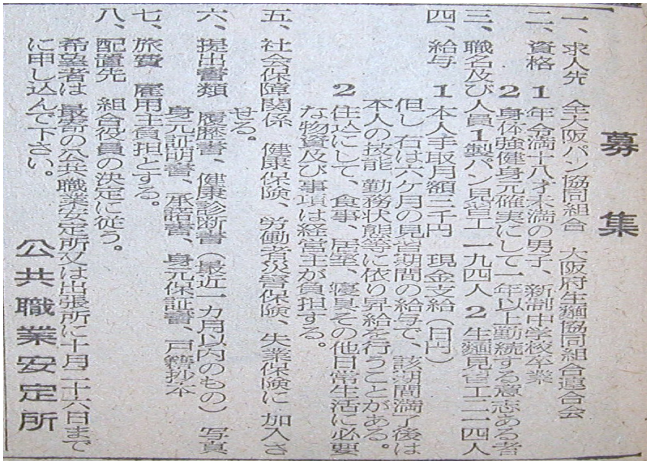 募集
一、求人先　全大阪パン協同組合　大阪府生麺協同組合連合会
二、資格　1年令満十八才未満の男子、新制中学校卒業
2身体強健身元確実にして一年以上勤続する意志ある者
三、職名及び人員1製パン見習工 一九四人 2生麺見習工 二二四人
四、給与　1本人手取月額三千円　現金支給（日円）
但し 右は六ケ月の見習期間の給与で、該期間満了後は
本人の技能 勤務状態等に依り昇給を行うことがある。
2住込にして、食事、居室、寝具その他日常生活に必要
な物資及び事項は経営主が負担する。
五、社会保障関係　健康保険、労働者災害保険、失業保険に 加入さ
せる。
六、提出書類　履歴書、健康診断書（最近一カ月以内のもの）　写真
身元証明書、承諾書、身元保証書、戸籍抄本
七、旅費　雇用主負担とする。
八、配置先　組合役員の決定に従う。
希望者は 最寄の公共職業安定所又は出張所に十月二十六日まで
に申し込んで下さい。
公共職業安定所